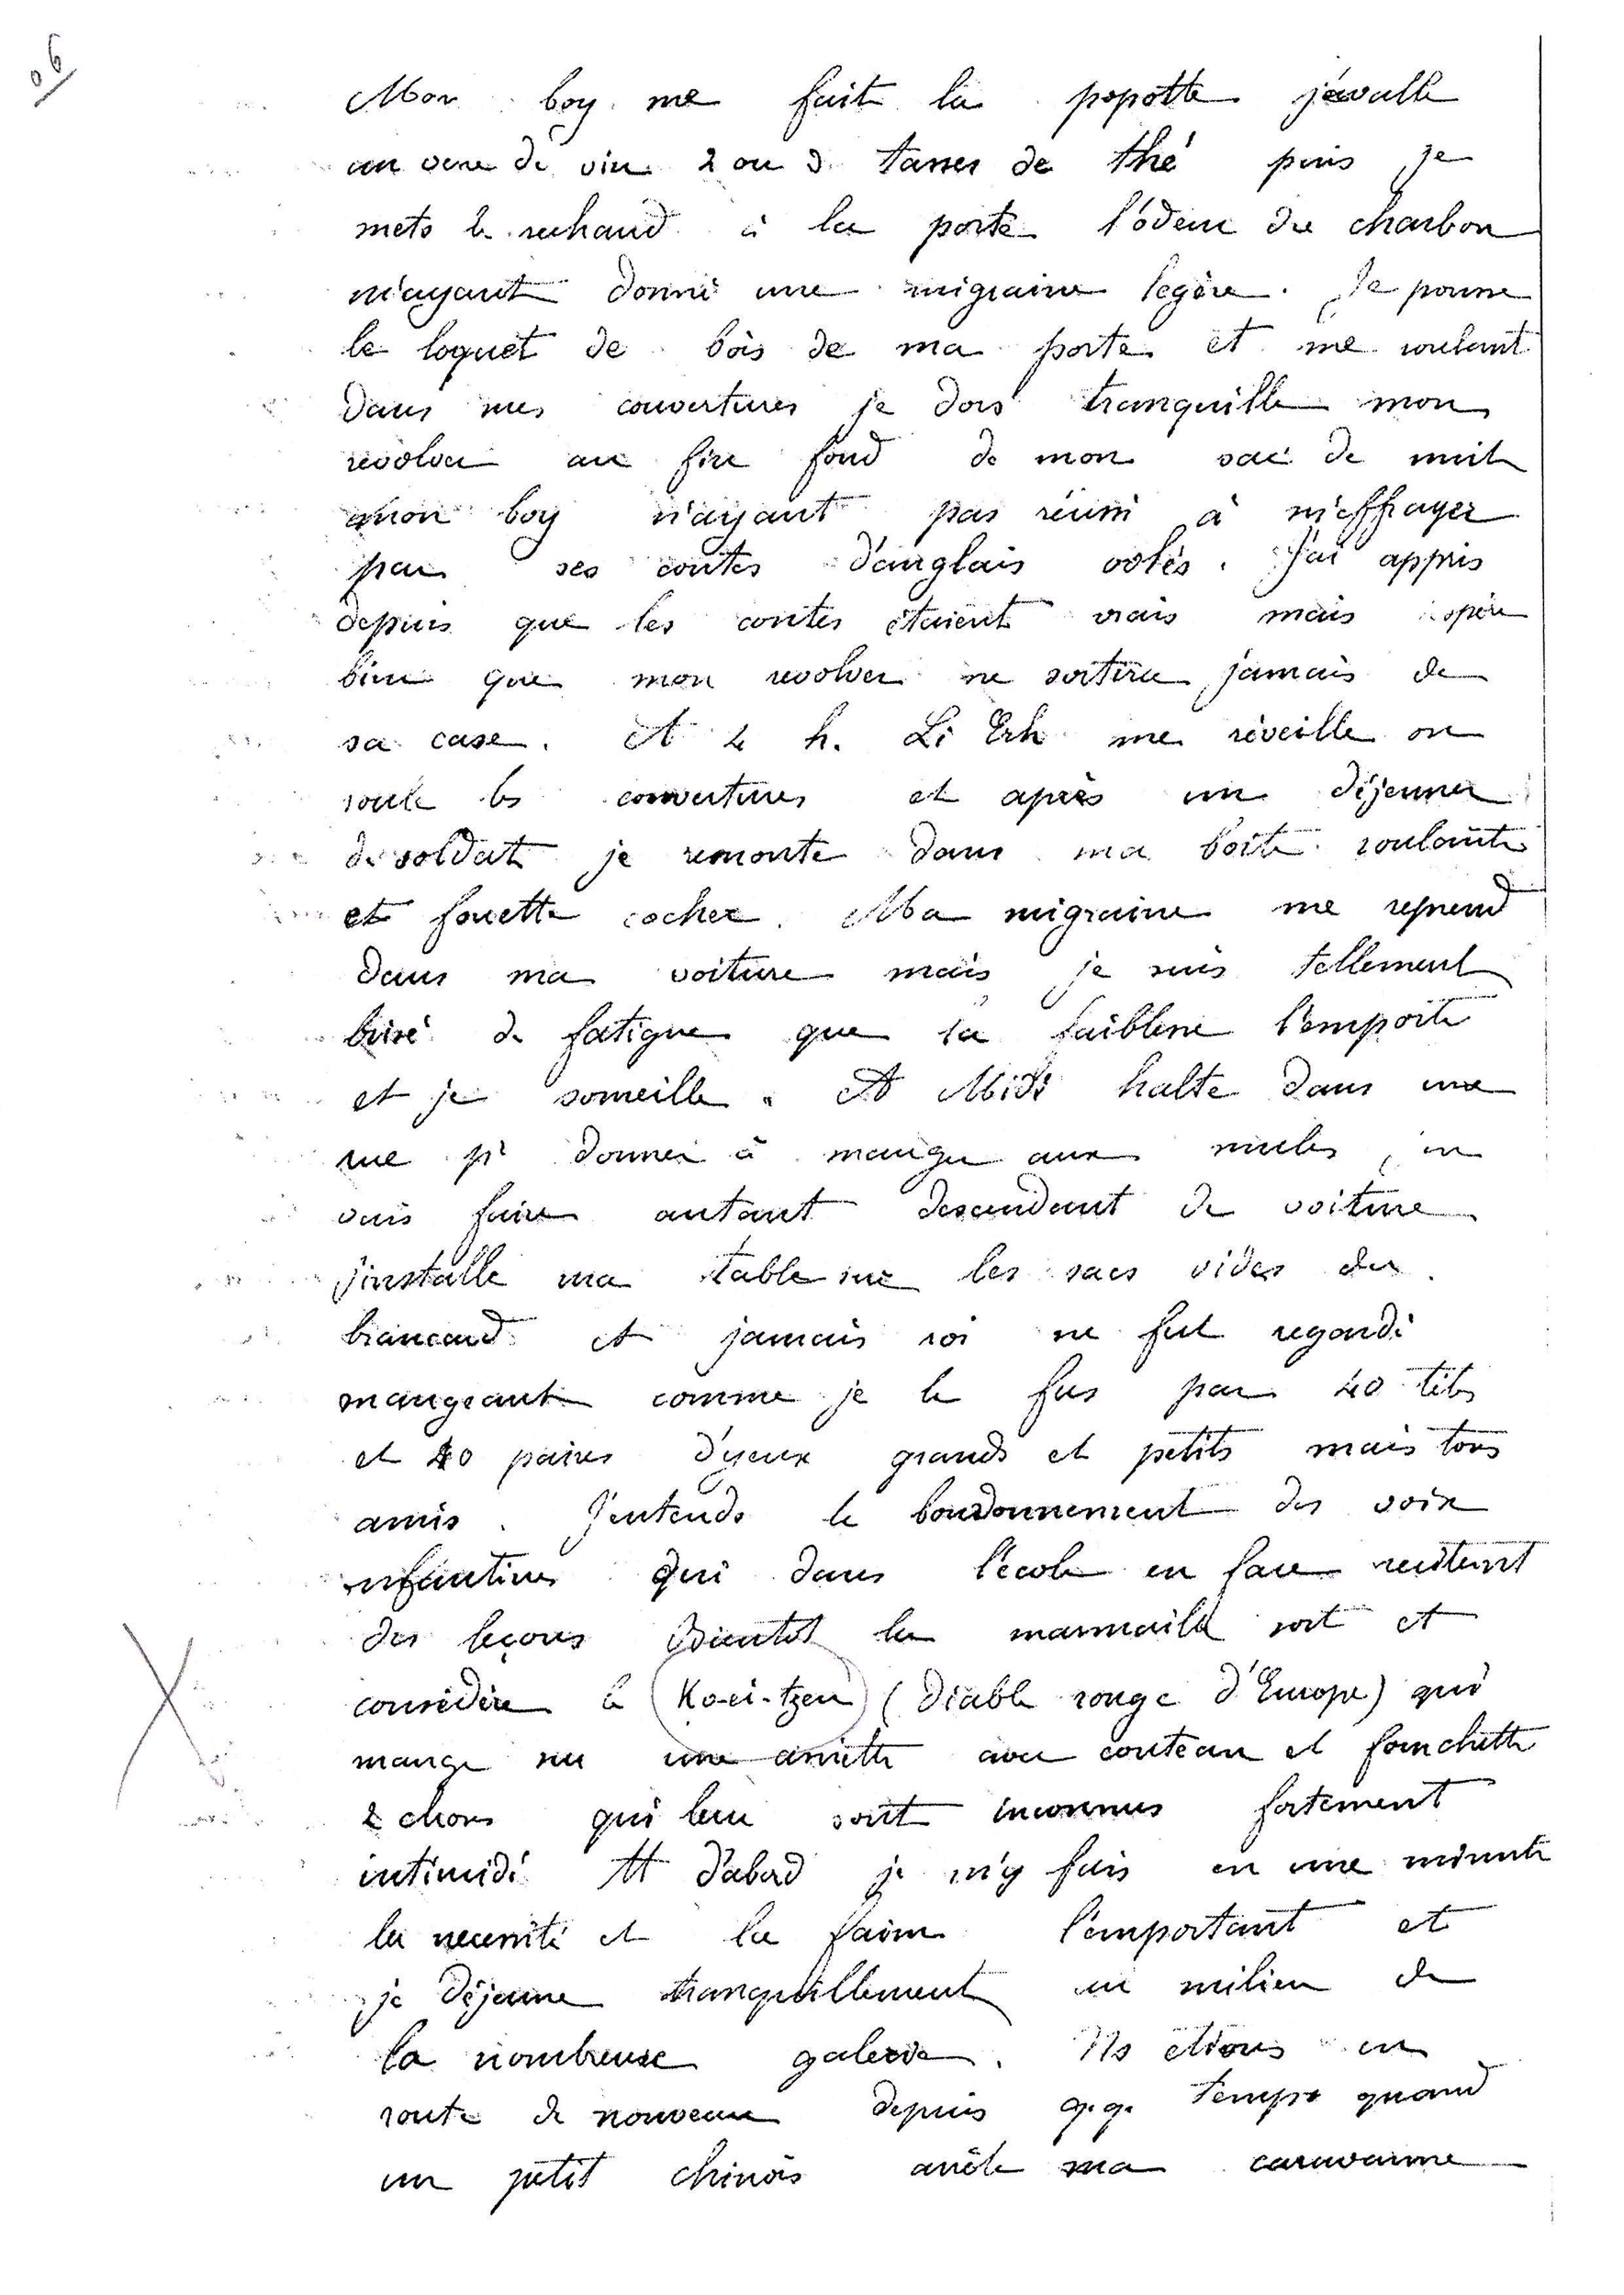 06
Mon boy me fait la popotte j'avalle
un verre de vin 2 ou 3 tasses de thé puis je
mets le rechaud à la porte l'odeur du charbon
m'ayant donné une migraine legère. Je pousse
le loquet de bois de ma porte et me roulant
dans mes couvertures je dors tranquille mon
revolver au fin fond de mon sac de nuit
mon boy n'ayant pas réussi à m'effrayer
par ses contes d'anglais volés. J'ai appris
depuis que les contes étaient vrais mais espère
bien que mon revolver ne sortira jamais de
sa case. A 4 h. Li Erh me réveille on
roule les couvertures et après un déjeuner
de soldat je remonte dans ma boite roulante
et fouette cocher. Ma migraine me reprend
dans ma voiture mais je suis tellement
brisé de fatigue que la faiblesse l'emporte
et je someille. A Midi halte dans une
rue pr donner à manger aux mules, j'en
vais faire autant descendant de voiture
j'installe ma table sur les sacs vides du
brancard et jamais roi ne fut regardé
mangeant comme je le fus par 40 têtes
et 40 paires d'yeux grands et petits mais tous
amis. J'entends le bourdonnement des voix
enfantines qui dans l'école en face recitent
des leçons Bientot la marmaille sort et
considère le Ko-ei-tzeu (diable rouge d'Europe) qui
mange sur une assiette avec couteau et fourchette
2 choses qui leur sont inconnues fortement
intimidé tt d'abord je m'y fais en une minute
la necessité et la faim l'emportant et
je déjeune tranquillement au milieu de
la nombreuse galerie. Ns etions en
route de nouveau depuis q.q. temps quand
un petit chinois arrête ma caravanne